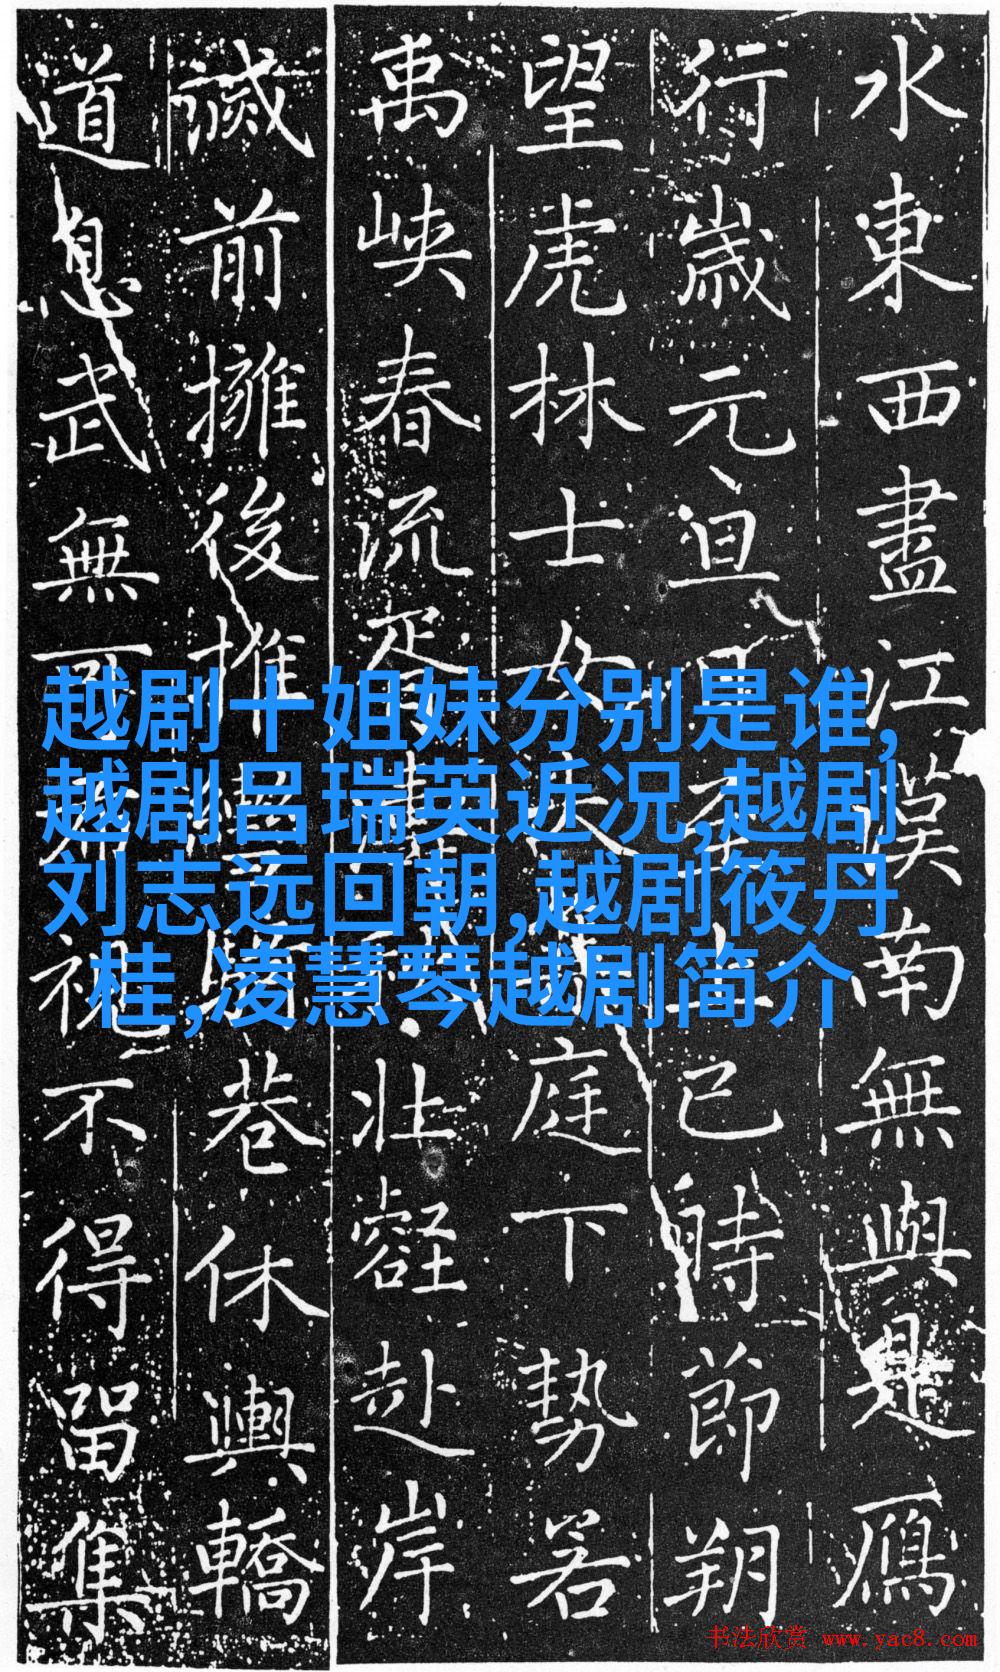 越剧十姐妹分别是谁,
越剧吕瑞英近况,越剧
刘志远回朝,越剧筱丹
桂,凌慧琴越剧简介
水東西盡江漢南無與是鴈
行歲元旦巳時節朔
望虎林士女庭下勢若
禹峽春流壯赴岸
滅前擁後推巷休輿轎
道息武無可視不得留集
书法欣赏 www.yac8.com